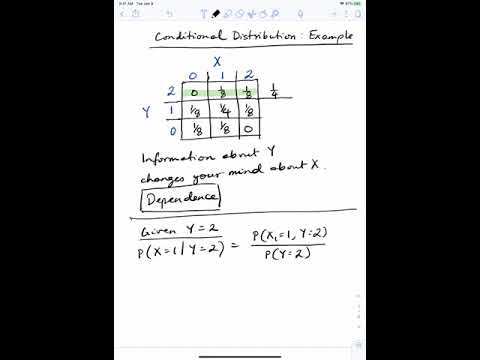 9:41 AM Tue Jan 9
Conditional Distribution: Example
X
0 1 2
2 0 1/8 1/8 1/4
Y 1 1/8 1/4 1/8
0 1/8 1/8 0
Information about Y
changes your mind about X.
Dependence
Given Y=2
P(X=1|Y=2) = P(X,=1, Y=2) / P(Y=2)